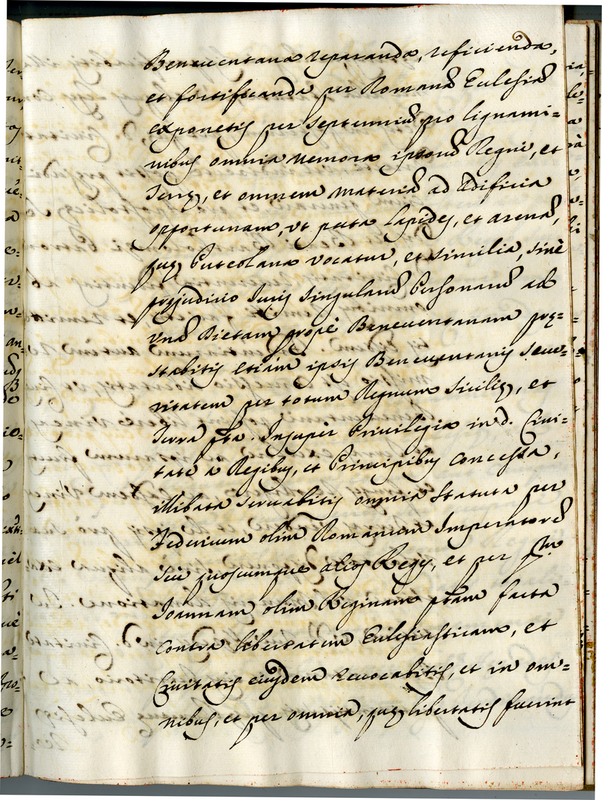 Beneventana reparanda, reficienda,
et fortificanda per Romanã Eclesiã
exponetis per septennium pro lignami=
nibus omnia nemora ipsorũ Regni, et
Terrę, et omnem materiã ad Ædificia
opportunam, vt puta lapides, et arenã,
quę Puteolana vocatur, et similia, sine
prejudicio Juris singularũ Personarũ ab
vnã Dietam propè Beneventanam prę=
stabitis etiam ipsis Beneventanis secu=
ritatem per totum Regnum Sicilię, et
Terrã pta. Insuper Privilegia in d. Civi=
tate a Regibus, et Principibus concessa,
illibata servabitis omnia Statuta per
Federicum olim Romanum Imperatorẽ
seu quoscumque alios Reges, et per
Joannam olim Reginam ptam facta
contra libertatem Eclesiasticam, et
Civitatis ejusdem revocabitis, et in om=
nibus, et per omnia, quę libertatis fuerint